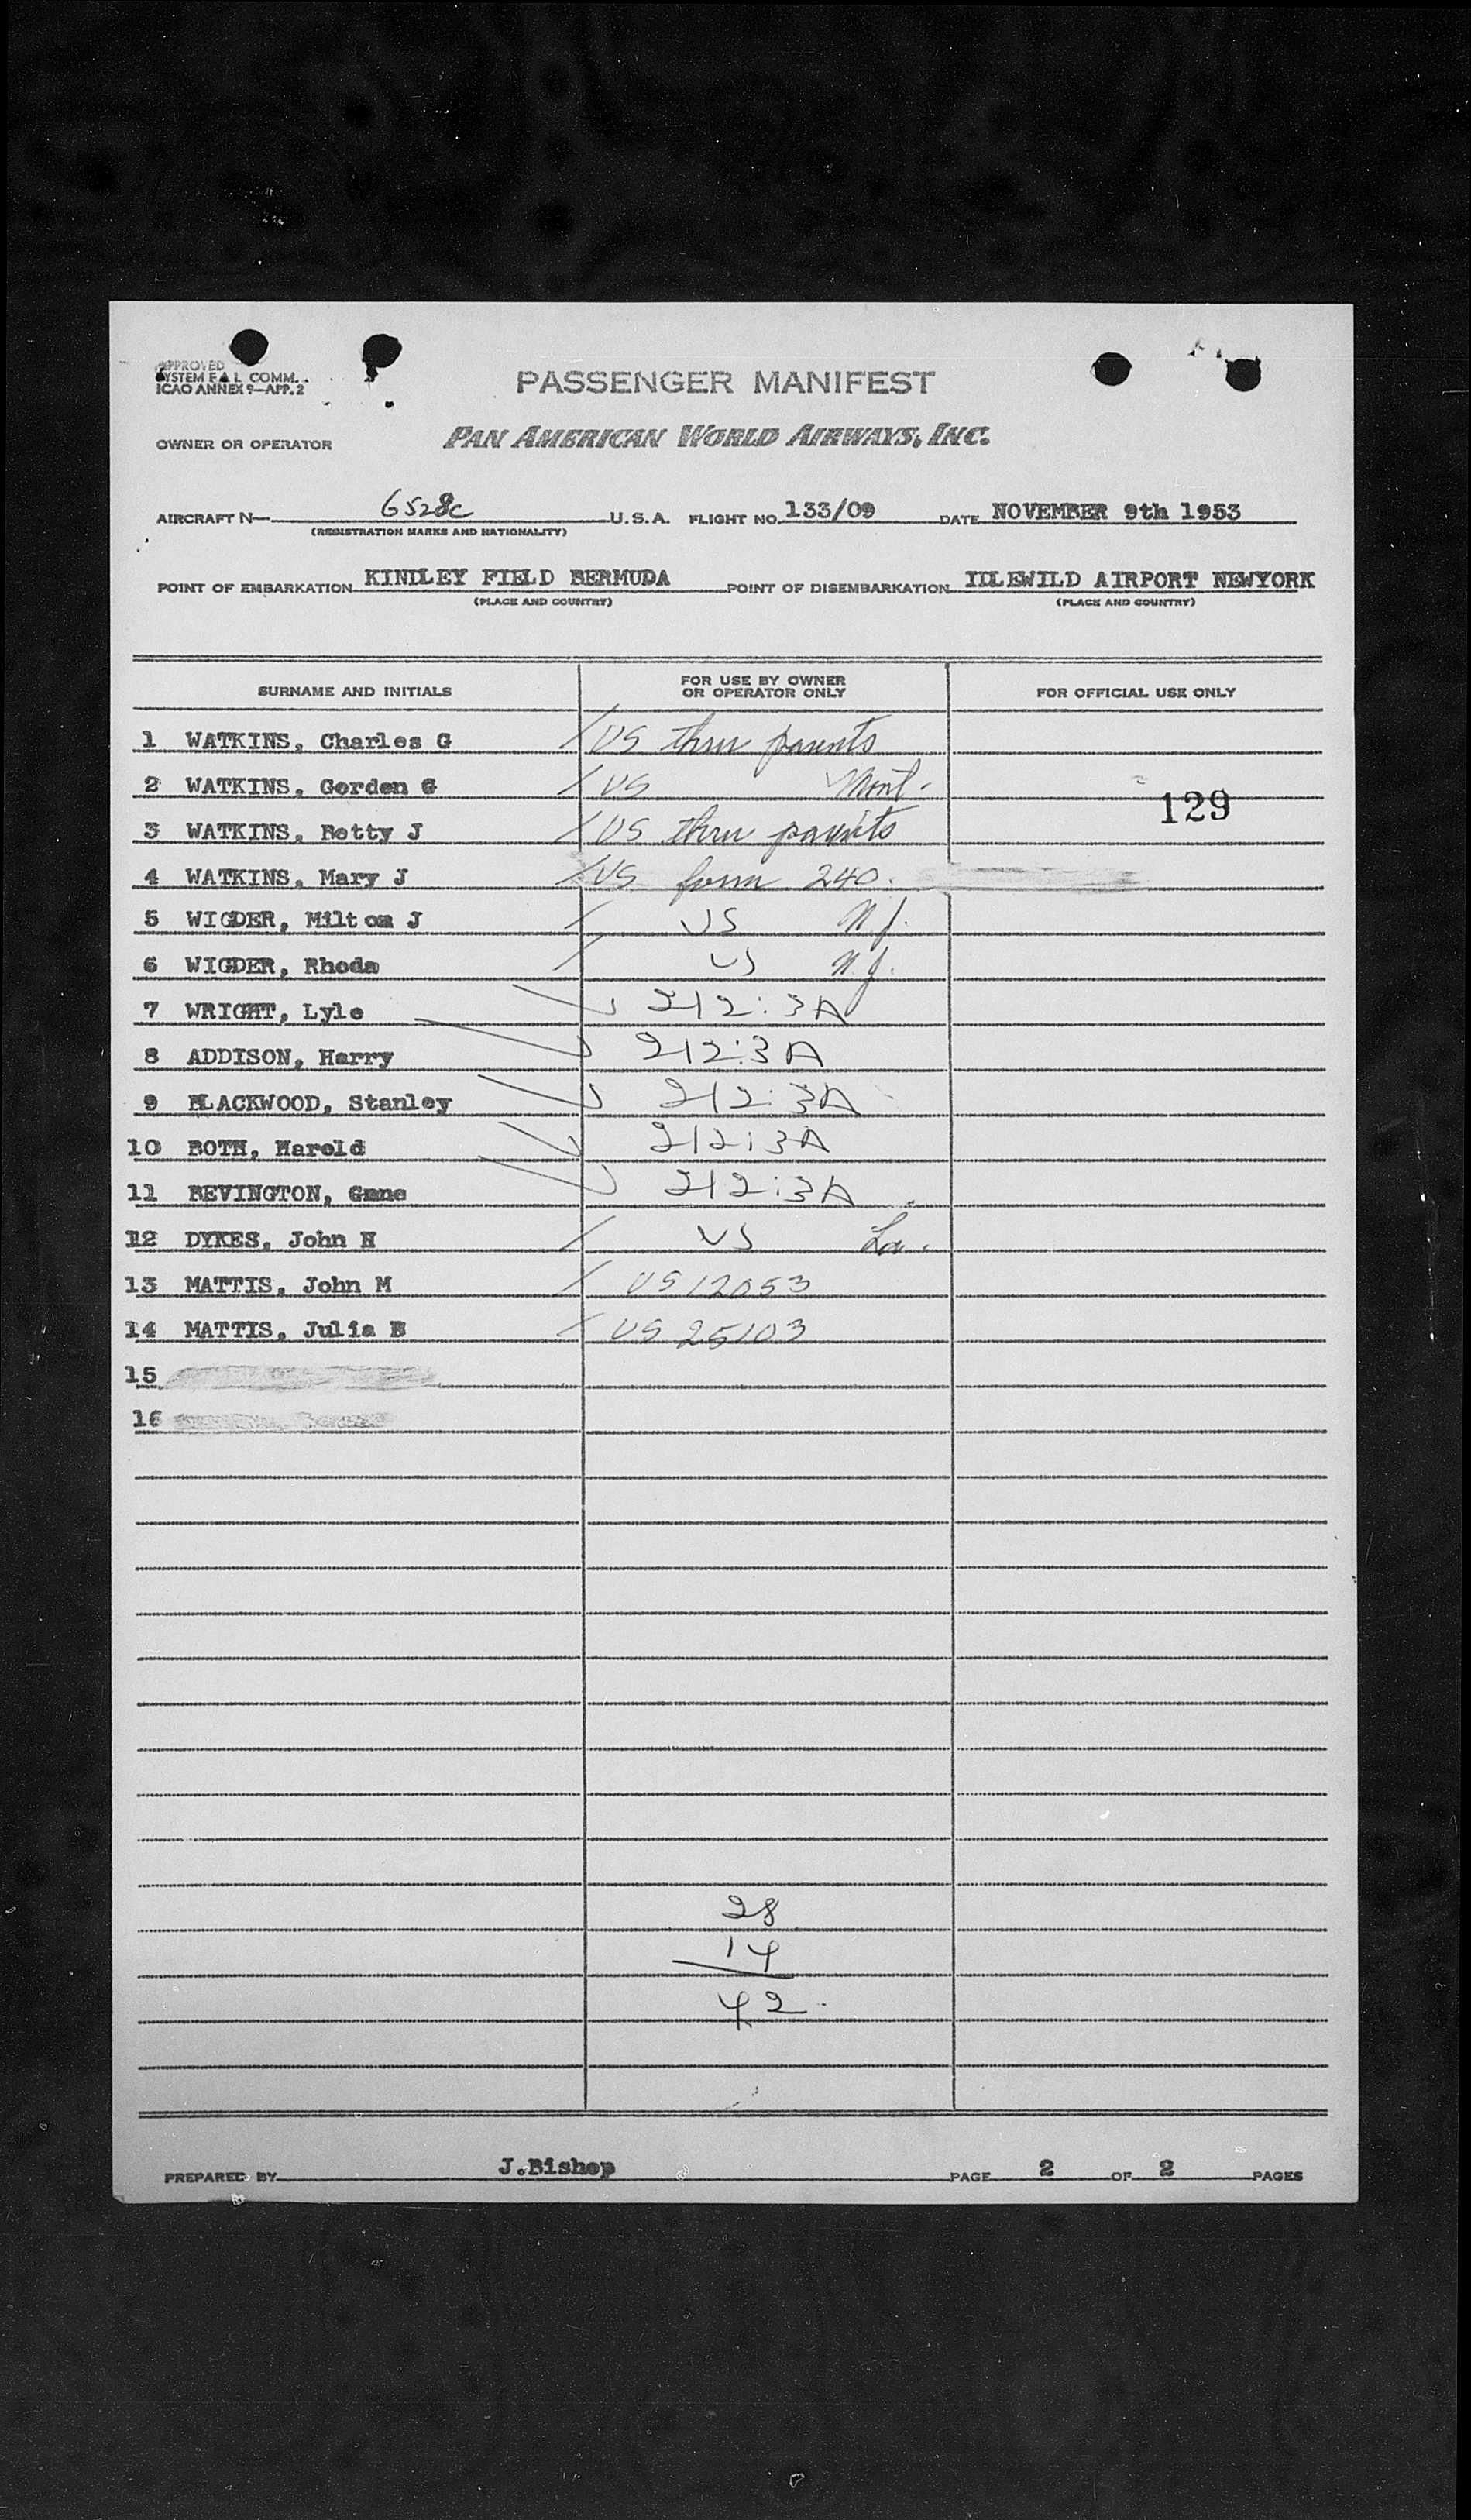 APPROVED
SYSTEM F A L COMM.
ICAO ANNEX 9—APP. 2
PASSENGER MANIFEST
OWNER OR OPERATOR PAN AMERICAN WORLD AIRWAYS, INC.
AIRCRAFT N— 6528C U.S.A. FLIGHT NO. 133/09 DATE NOVEMBER 9th 1953
(REGISTRATION MARKS AND NATIONALITY)
POINT OF EMBARKATION KINDLEY FIELD BERMUDA POINT OF DISEMBARKATION IDLEWILD AIRPORT NEWYORK
(PLACE AND COUNTRY) (PLACE AND COUNTRY)
SURNAME AND INITIALS FOR USE BY OWNER OR OPERATOR ONLY FOR OFFICIAL USE ONLY
1 WATKINS, Charles G / US thru parents
2 WATKINS, Gorden G / US Mont.
129
3 WATKINS, Betty J / US thru parents
4 WATKINS, Mary J / US form 240.
5 WIGDER, Milton J / US N.J.
6 WIGDER, Rhoda / US N.J.
7 WRIGHT, Lyle 212:3A
8 ADDISON, Harry 212:3A
9 BLACKWOOD, Stanley 212:3A
10 BOTH, Harold 212:3A
11 BEVINGTON, Gene 212:3A
12 DYKES, John H / US La.
13 MATTIS, John M / US 12053
14 MATTIS, Julia B / US 25103
15
16
28
14
42
PREPARED BY J.Bishop PAGE 2 OF 2 PAGES